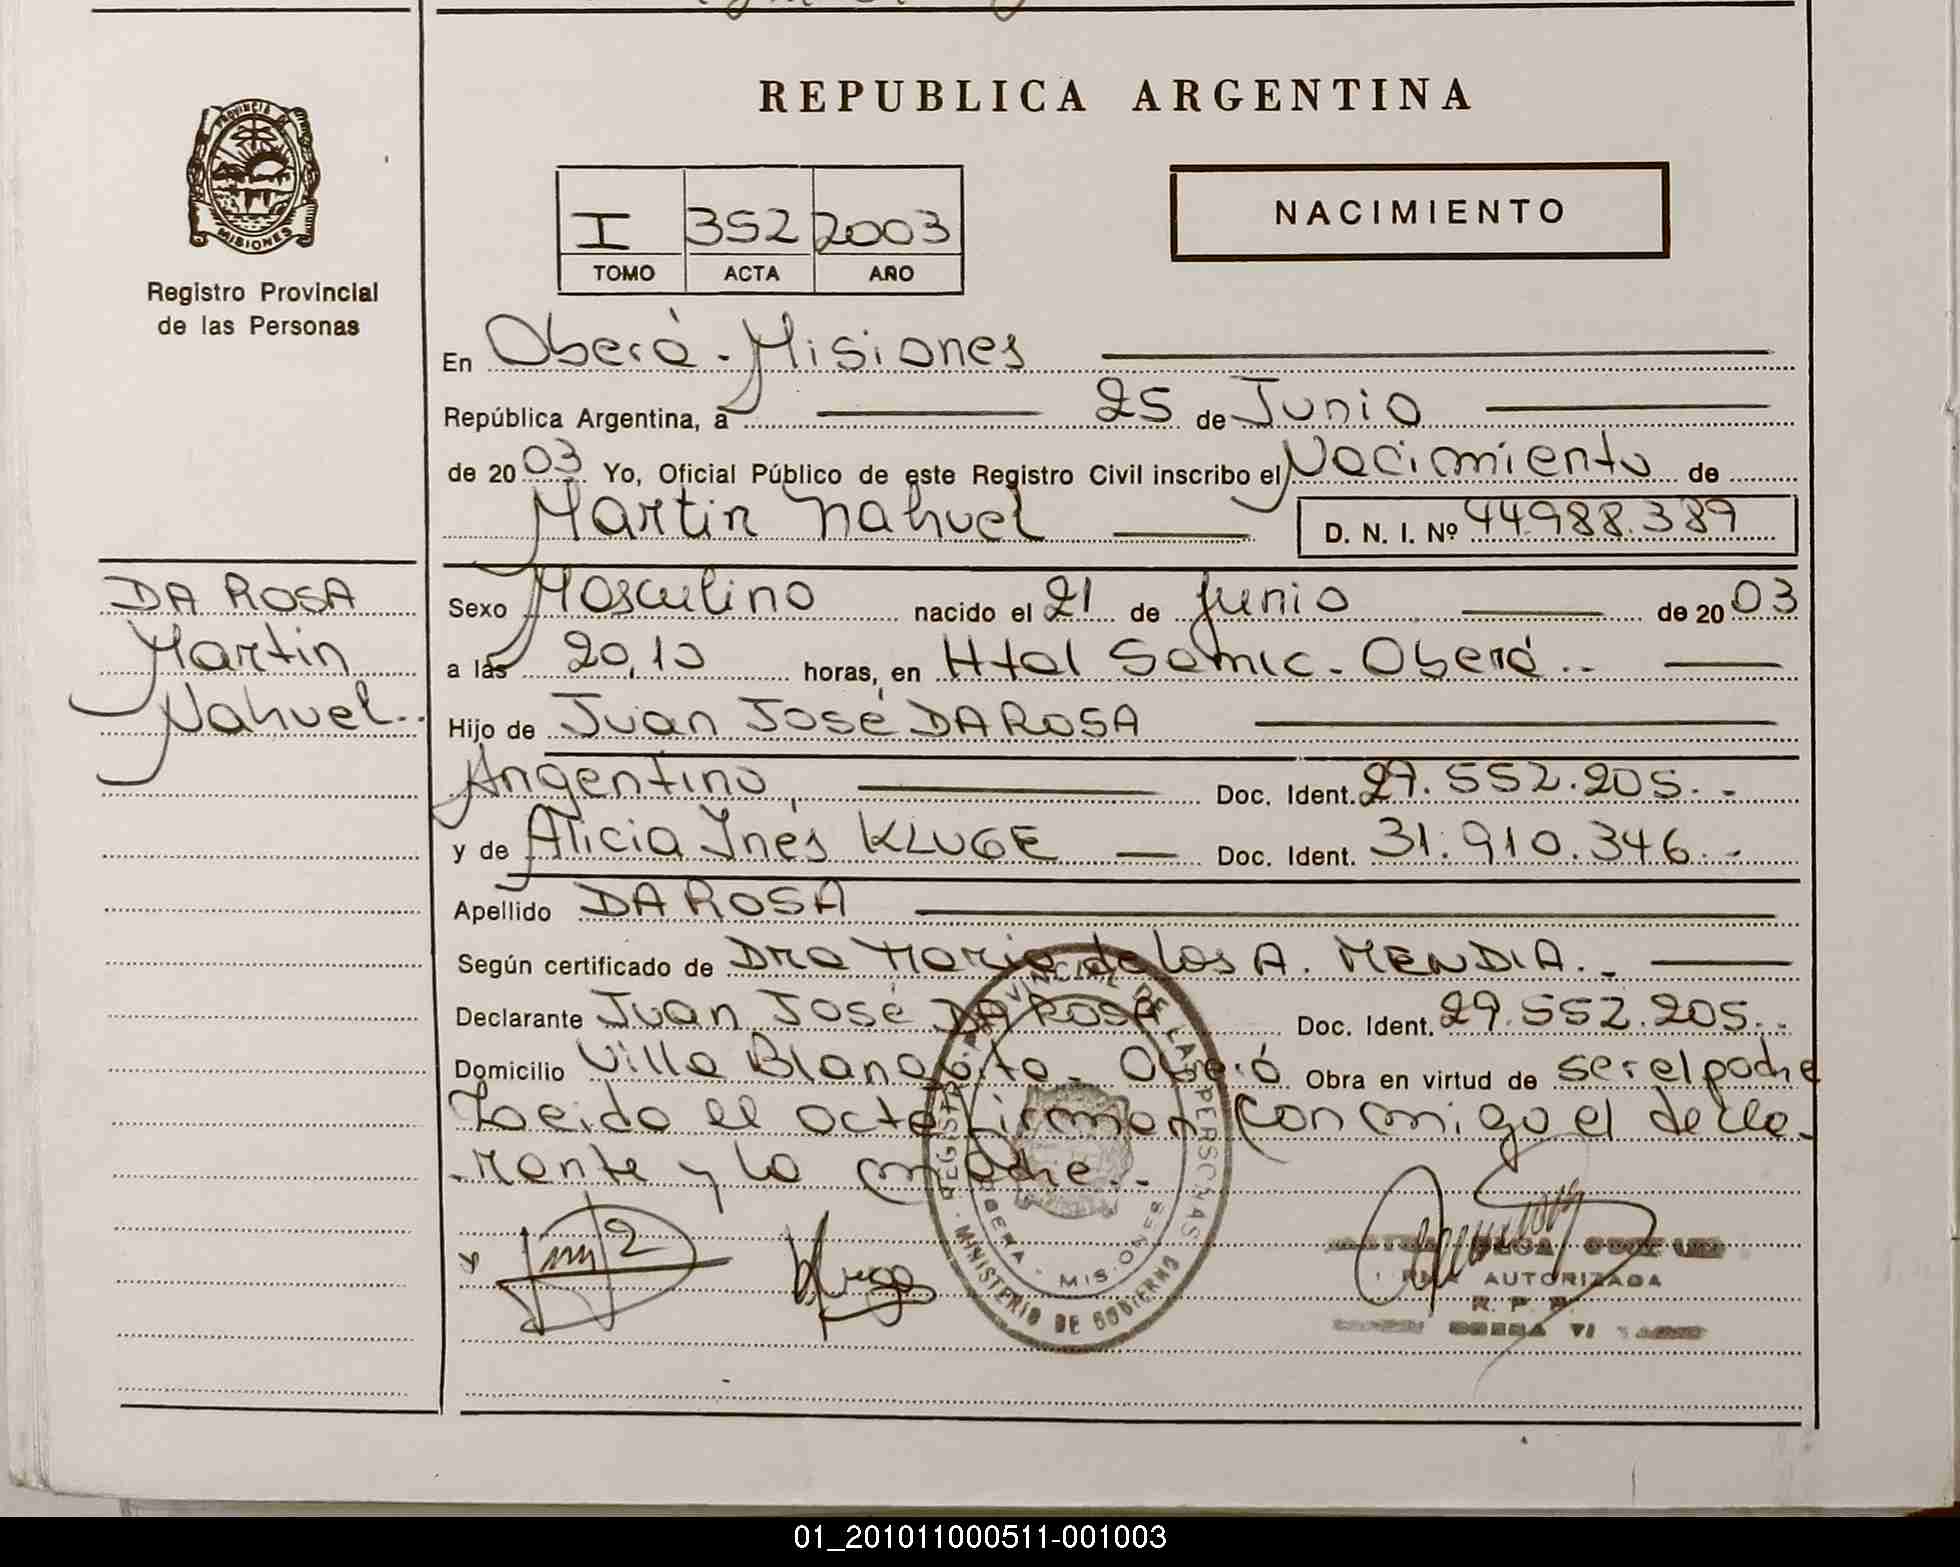 REPUBLICA ARGENTINA
PROVINCIA DE
MISIONES
Registro Provincial
de las Personas
I 352 2003
TOMO ACTA AÑO
NACIMIENTO
En Oberá - Misiones
República Argentina, a 25 de Junio
de 20 03 Yo, Oficial Público de este Registro Civil inscribo el Nacimiento de
Martin Nahuel D. N. I. Nº 44.988.389
DA ROSA
Martin
Nahuel..
Sexo Masculino nacido el 21 de Junio de 20 03
a las 20,10 horas, en Htal Samic - Oberá..
Hijo de Juan José DA ROSA
Argentino, Doc. Ident. 29.552.205.-
y de Alicia Inés KLUGE Doc. Ident. 31.910.346.-
Apellido DA ROSA
Según certificado de Dra Maria de los A. MENDIA..
Declarante Juan José DA ROSA Doc. Ident. 29.552.205..
Domicilio Villa Blanquita - Oberá Obra en virtud de ser el padre
Leido el acta firman conmigo el decla-
-rante y la madre..
REGISTRO PROVINCIAL DE LAS PERSONAS
OBERA - MISIONES
MINISTERIO DE GOBIERNO
AUTORIZADA
R. P. P.
01_201011000511-001003